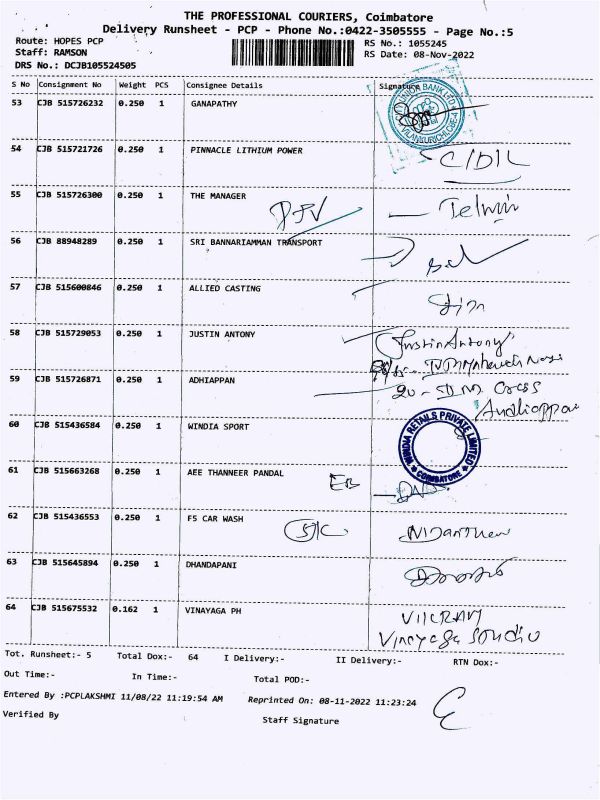 THE PROFESSIONAL COURIERS, Coimbatore
Delivery Runsheet - PCP - Phone No.:0422-3505555 - Page No.:5
Route: HOPES PCP
RS No.: 1055245
Staff: RAMSON
RS Date: 08-Nov-2022
DRS No.: DCJB105524505
S No Consignment No Weight PCS Consignee Details Signature
53 CJB 515726232 0.250 1 GANAPATHY
54 CJB 515721726 0.250 1 PINNACLE LITHIUM POWER
55 CJB 515726300 0.250 1 THE MANAGER
56 CJB 88948289 0.250 1 SRI BANNARIAMMAN TRANSPORT
57 CJB 515600846 0.250 1 ALLIED CASTING
58 CJB 515729053 0.250 1 JUSTIN ANTONY
Justin Antony
59 CJB 515726871 0.250 1 ADHIAPPAN
60 CJB 515436584 0.250 1 WINDIA SPORT
WINDIA RETAILS PRIVATE LIMITED
COIMBATORE
61 CJB 515663268 0.250 1 AEE THANNEER PANDAL
EB
62 CJB 515436553 0.250 1 F5 CAR WASH
63 CJB 515645894 0.250 1 DHANDAPANI
64 CJB 515675532 0.162 1 VINAYAGA PH
VIKRAM
Vinayaga Studio
Tot. Runsheet:- 5 Total Dox:- 64 I Delivery:- II Delivery:- RTN Dox:-
Out Time:- In Time:- Total POD:-
Entered By :PCPLAKSHMI 11/08/22 11:19:54 AM Reprinted On: 08-11-2022 11:23:24
Verified By Staff Signature